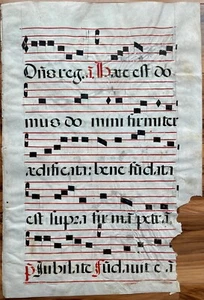 Dn̄s reg. ā. Haec est do
mus do mini firmiter
ædificata: bene fūdata
est supra fir mā petrā.
p̄. Jubilate. Jūdavit e. ā.